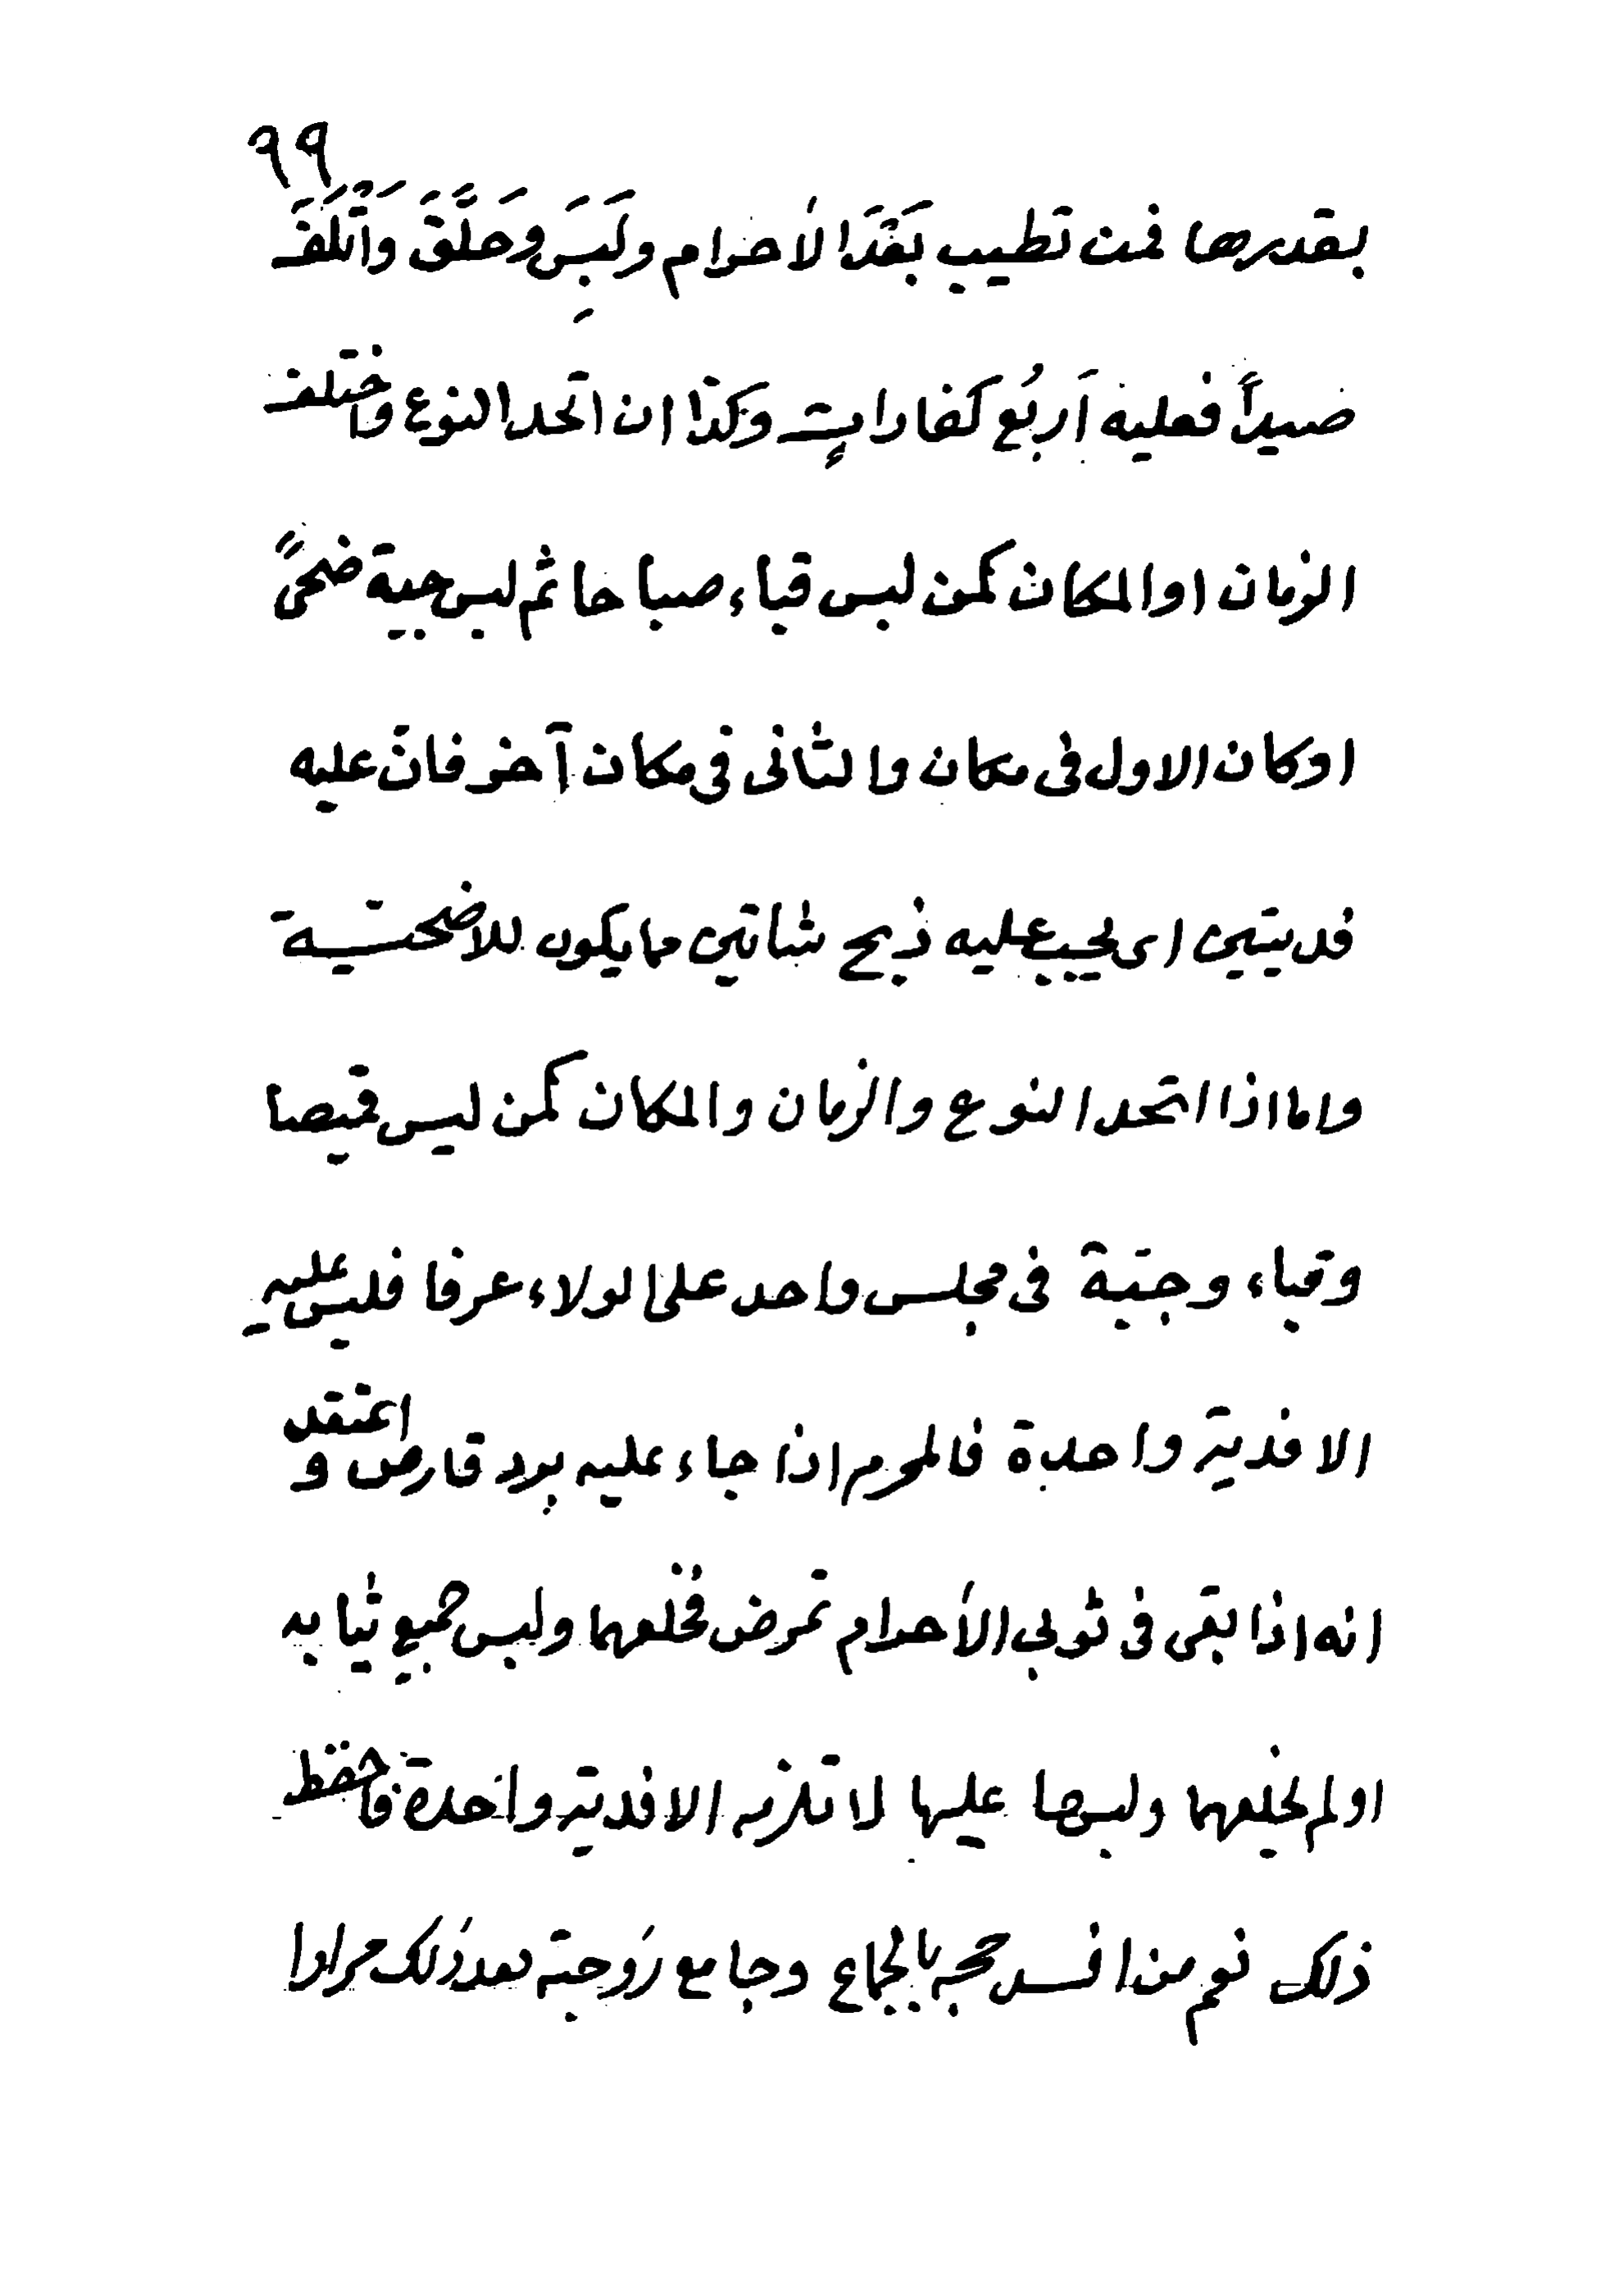 ٩٩
بقدرها فمن تطيب بَعْدَ الأحرام ولَبِسَ وحَلَّقَ وَأَتْلَفَ
صيداً فعليه أربُع كفاراتٍ وكذا ان اتحد النوع واختلف
الزمان او المكان كمن لبس قباء صباحا ثم لبس جبة ضحىً
او كان الاول فى مكان والثانى فى مكان آخر فان عليه
فديتين اى يجب عليه ذبح شاتين مما يكون للاضحية
واما اذا اتحد النوع والزمان والمكان كمن لبس قميصا
وقباء وجبة فى مجلس واحد على الولاء عرفا فليس عليه
الا فدية واحدة فالمحرم اذا جاء عليه برد قارص و اعتقد
انه اذا بقى فى ثوبي الأحرام تمرض فخلعهما ولبس جميع ثيابه
او لم يخلعهما ولبسها عليها لا تلزمه الا فدية واحدة فاحفظ
ذلك نعم من افسد حجه بالجماع وجامع زوجته بعد ذلك مرارا